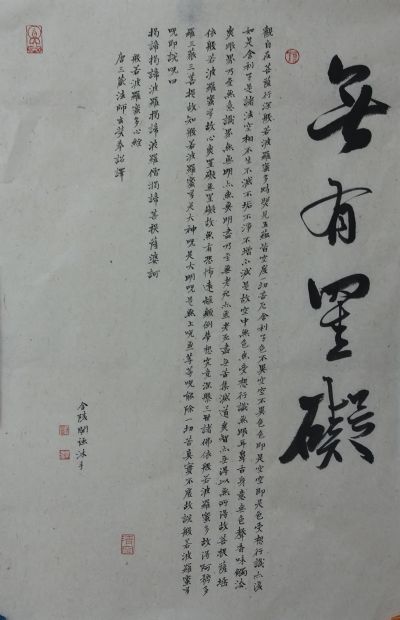 無有罣礙
觀自在菩薩行深般若波羅蜜多時照見五蘊皆空度一切苦厄舍利子色不異空空不異色色即是空空即是色受想行識亦復
如是舍利子是諸法空相不生不滅不垢不淨不增不減是故空中無色無受想行識無眼耳鼻舌身意無色聲香味觸法
無眼界乃至無意識界無無明亦無無明盡乃至無老死亦無老死盡無苦集滅道無智亦無得以無所得故菩提薩埵
依般若波羅蜜多故心無罣礙無罣礙故無有恐怖遠離顛倒夢想究竟涅槃三世諸佛依般若波羅蜜多故得阿耨多
羅三藐三菩提故知般若波羅蜜多是大神咒是大明咒是無上咒是無等等咒能除一切苦真實不虛故說般若波羅蜜多
咒即說咒曰
揭諦揭諦波羅揭諦波羅僧揭諦菩提薩婆訶
般若波羅蜜多心經
唐三藏法師玄奘奉詔譯
沐手